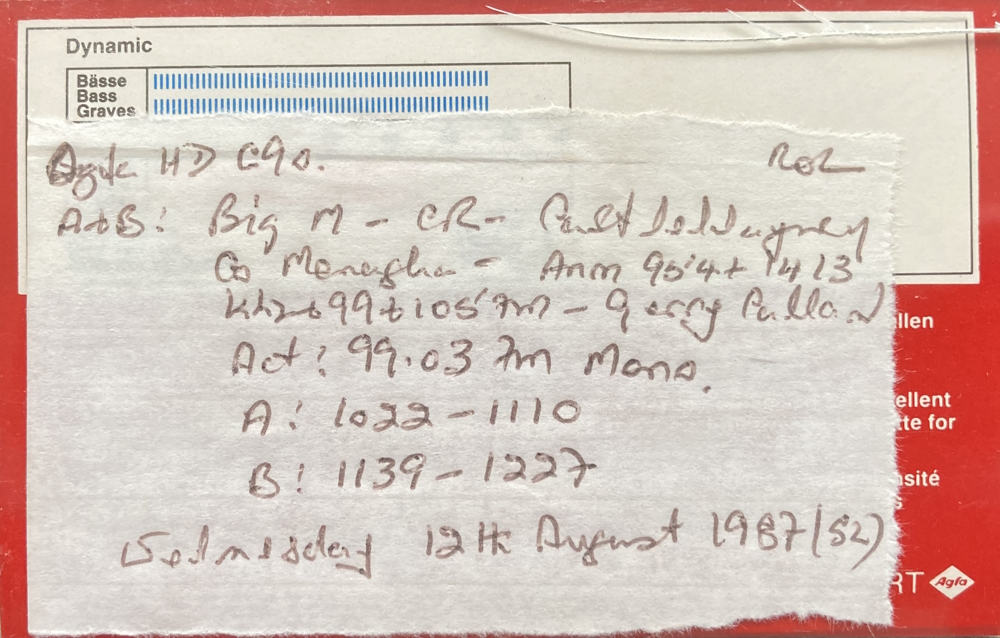 Dynamic
Bässe
Bass
Graves
Agfa HD C90. ROI
A+B: Big M - CR-
Co Monaghan - Ann 95.4 + 1413
Khz + 99 + 105 Fm - Gerry
Act: 99.03 Fm Mono.
A: 1022 - 1110
B: 1139 - 1227
Wednesday 12th August 1987 (52)
llen
ellent
tte for
sité
s
RT Agfa